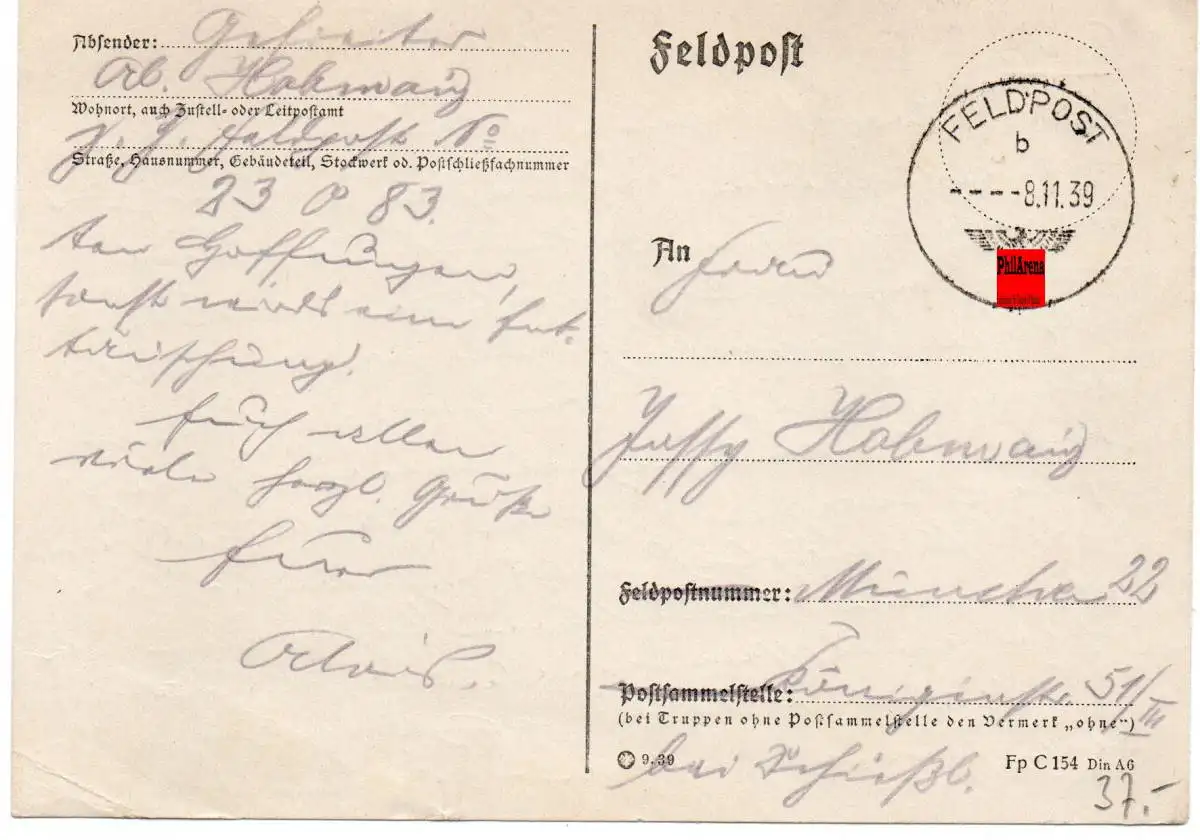 Absender: Gefreiter
Al. Habmair
Wohnort, auch Zustell- oder Leitpostamt
z. Z. Feldpost No
Straße, Hausnummer, Gebäudeteil, Stockwerk od. Postschließfachnummer
23 0 83.
den Hoffnungen,
sonst wird es eine Ent-
täuschung.
Euch allen
viele herzl. Grüße
Euer
Alois.
Feldpost
FELDPOST
b
----8.11.39
PhilArena
An Frau
Habmair
Feldpostnummer: München 22
Postsammelstelle: Königinstr. 51/III
(bei Truppen ohne Postsammelstelle den Vermerk „ohne“)
bei Schießl.
9. 39
Fp C 154 Din A6
37.-